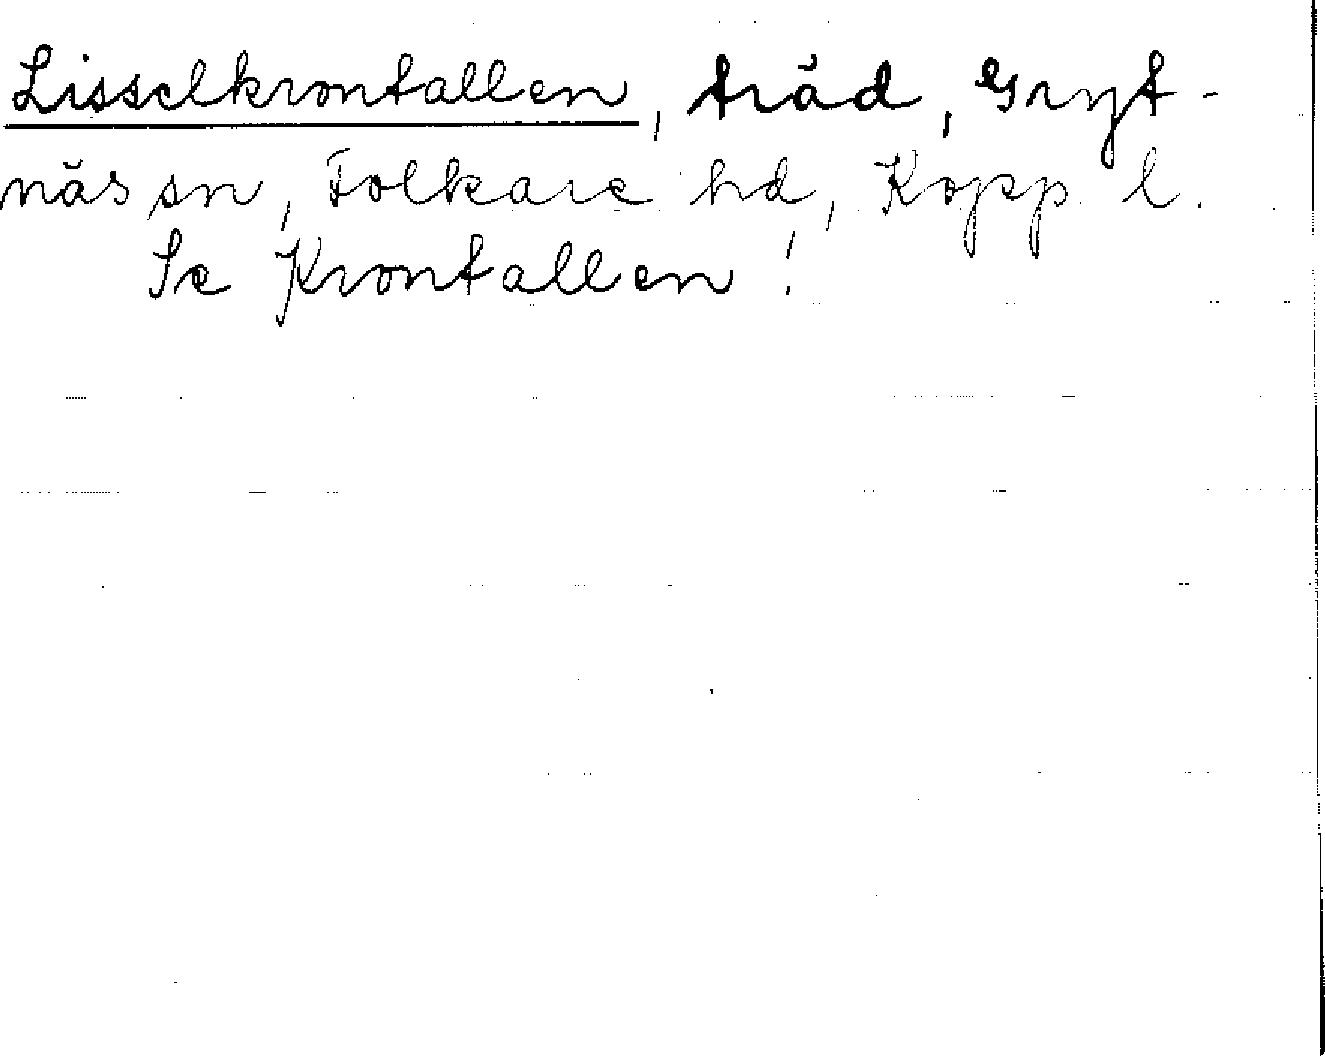 Lisselkrontallen, träd, Gryt-
näs sn, Folkare hd, Kopp. l.
Se Krontallen!